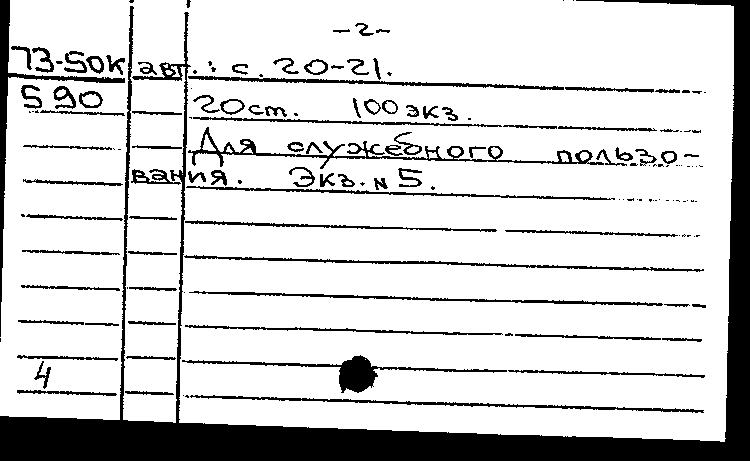 -2-
73-50К авт.: с. 20-21.
590 20ст. 100экз.
Для служебного пользо-
вания. Экз. N 5.
4